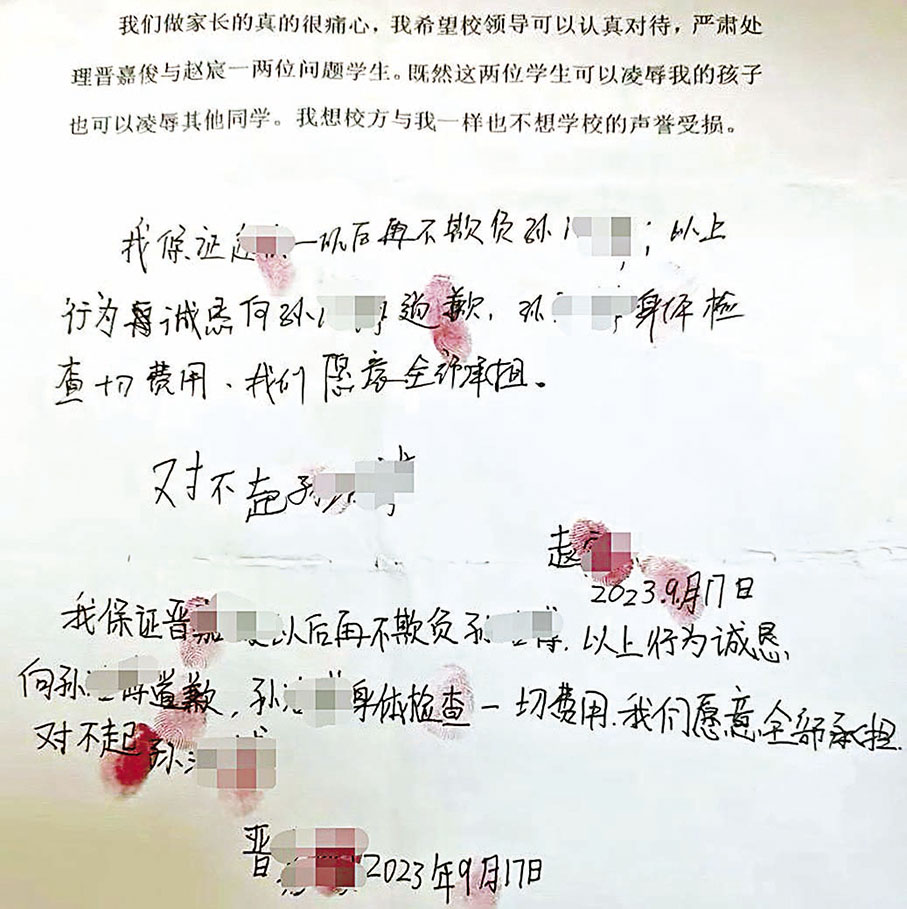 我们做家长的真的很痛心，我希望校领导可以认真对待，严肃处
理晋嘉俊与赵宸一两位问题学生。既然这两位学生可以凌辱我的孩子
也可以凌辱其他同学。我想校方与我一样也不想学校的声誉受损。
我保证赵一以后再不欺负孙；以上
行为诚恳向孙道歉，孙身体检
查一切费用、我们愿意全部承担。
对不起孙
赵
2023.9月17日
我保证晋嘉以后再不欺负孙，以上行为诚恳
向孙道歉，孙身体检查一切费用.我们愿意全部承担.
对不起孙
晋 2023年9月17日